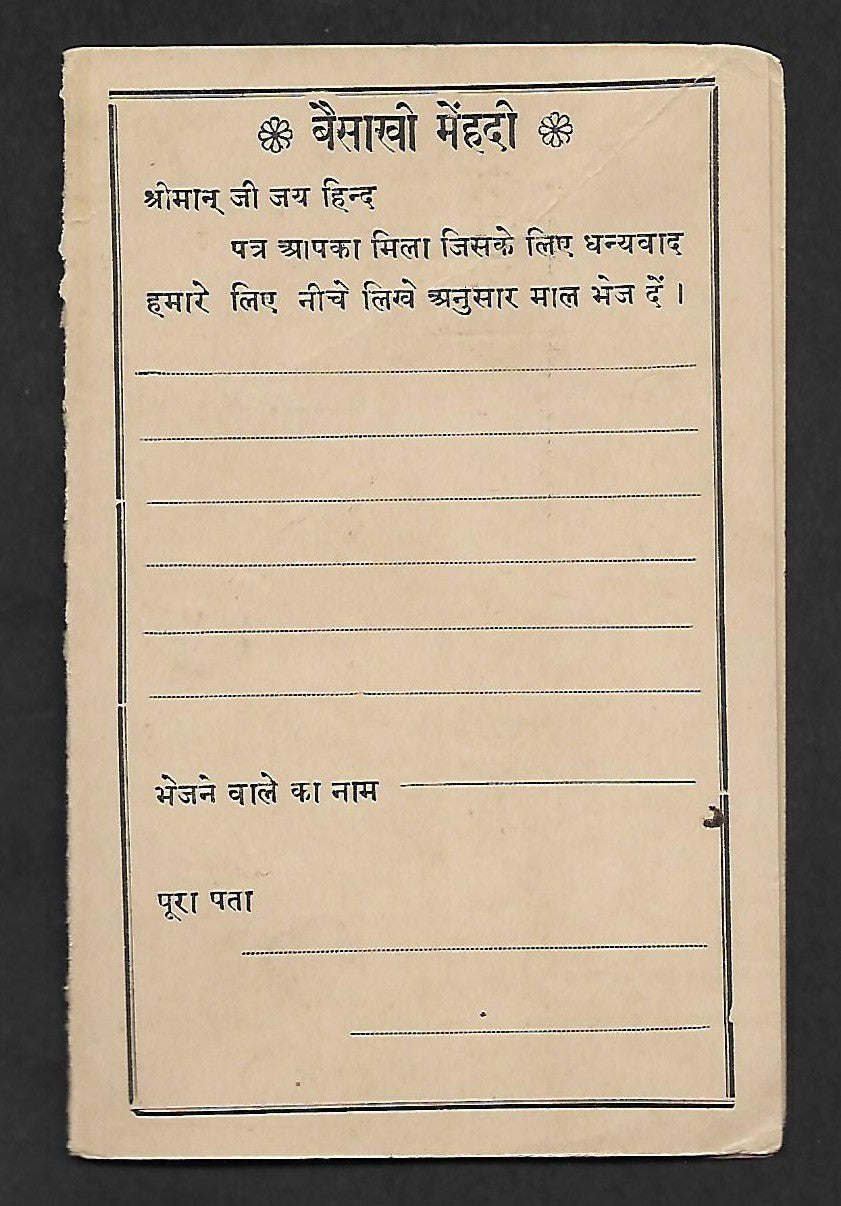 बैसाखी मेंहदी
श्रीमान् जी जय हिन्द
पत्र आपका मिला जिसके लिए धन्यवाद
हमारे लिए नीचे लिखे अनुसार माल भेज दें ।
भेजने वाले का नाम
पूरा पता